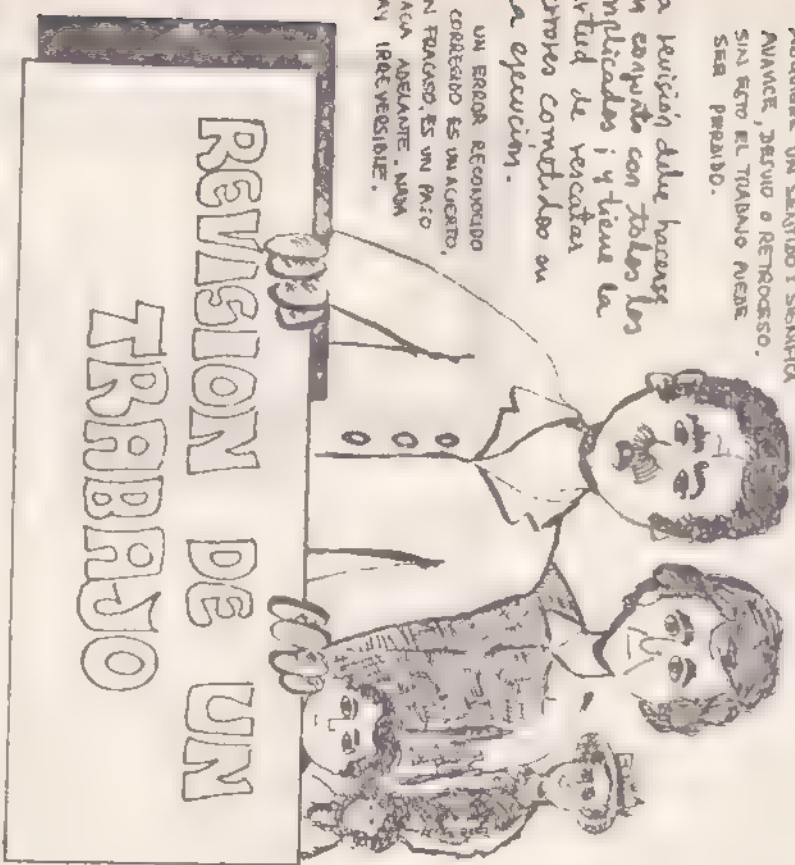 ADQUIERE UN SENTIDO I SIGNIFICA
AVANCE, DESVIO O RETROCESO.
SIN ESTO EL TRABAJO PUEDE
SER PERDIDO.
a revisión debe hacerse
n conjunto con todos los
mplicados; y tiene la
irtud de rescatar
rrores cometidos en
a ejecución.
UN ERROR RECONOCIDO
CORREGIDO ES UN ACIERTO,
N FRACASO, ES UN PASO
ACIA ADELANTE. NADA
AY IRREVERSIBLE.
REVISION DE UN
TRABAJO